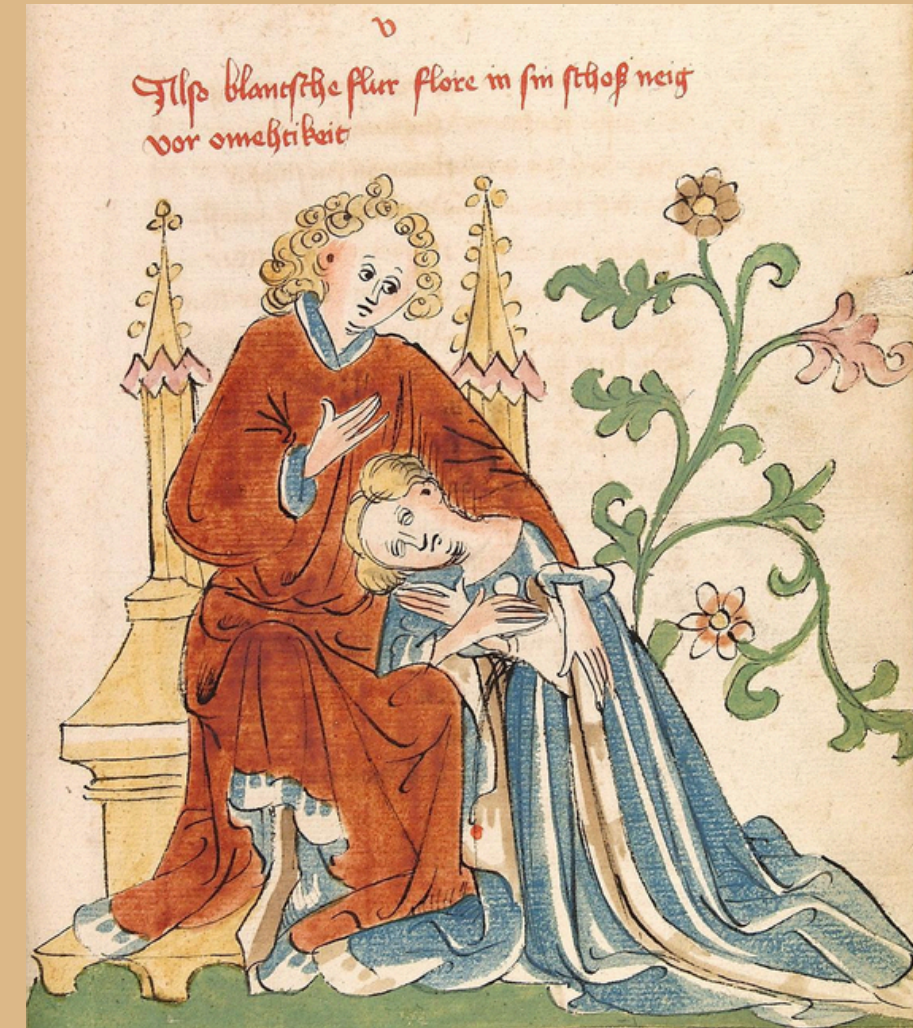 v
Also blantsche flur flore in sin schoß neig
vor omehtikeit